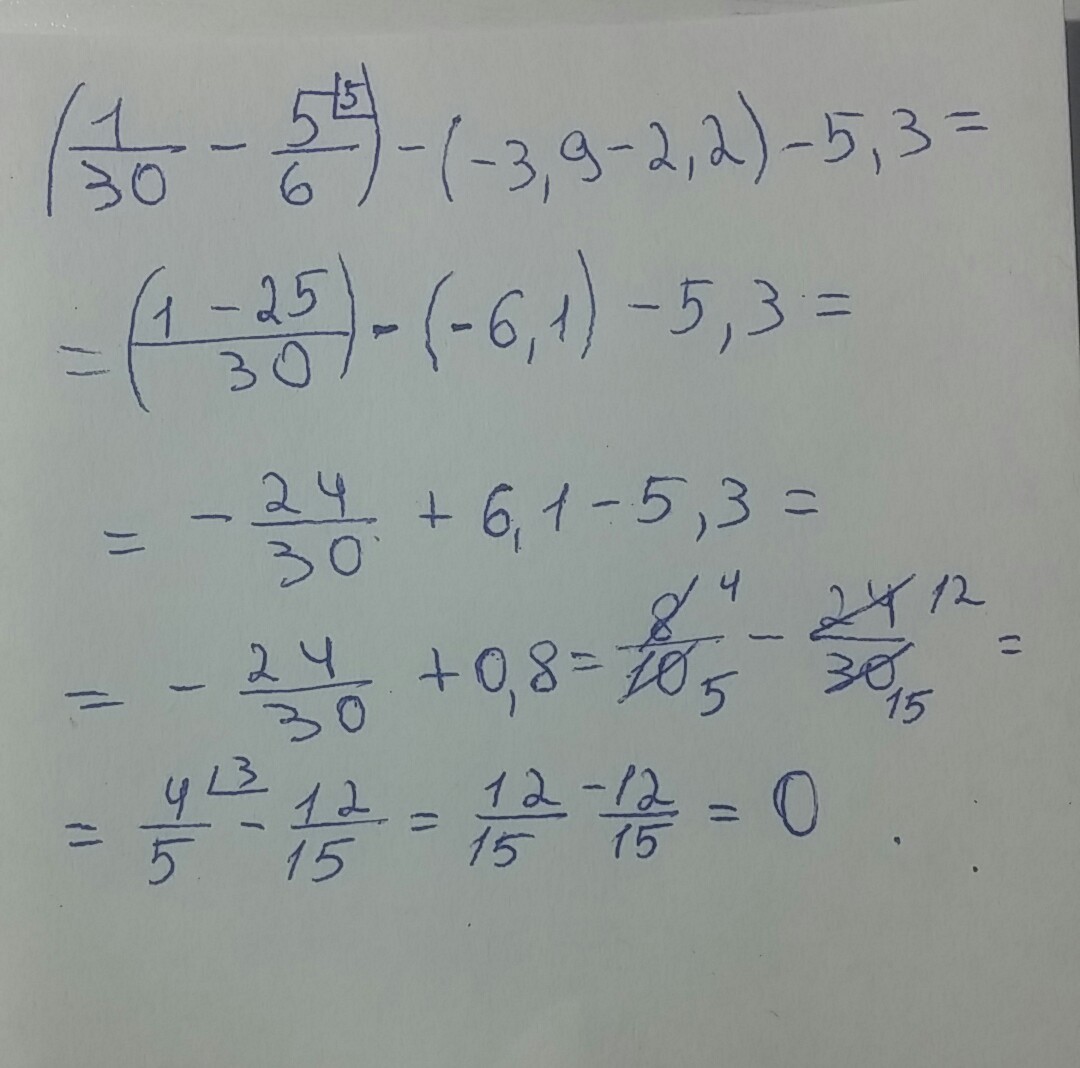 (1/30 - 5⌊5/6) - (-3,9 - 2,2) - 5,3 =
= (1 - 25/30) - (-6,1) - 5,3 =
= - 24/30 + 6,1 - 5,3 =
= - 24/30 + 0,8 = 8 4/10 5 - 24 12/30 15 =
= 4⌊3/5 - 12/15 = 12/15 - 12/15 = 0.